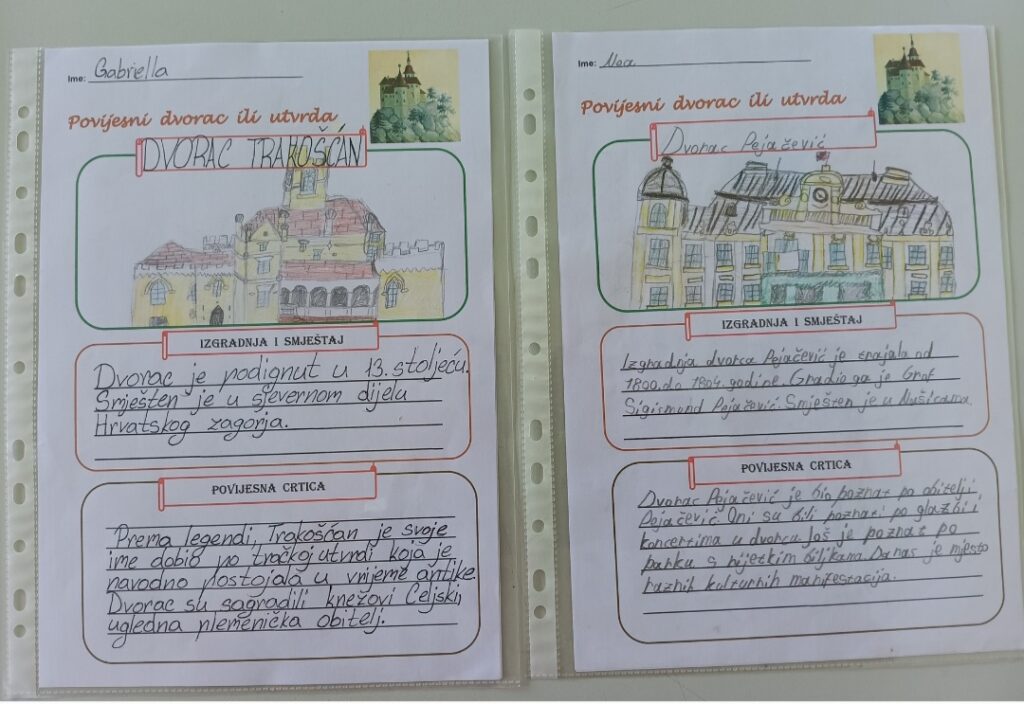 Ime: Gabriella
Povijesni dvorac ili utvrda
DVORAC TRAKOŠĆAN
IZGRADNJA I SMJEŠTAJ
Dvorac je podignut u 13. stoljeću.
Smješten je u sjevernom dijelu
Hrvatskog zagorja.
POVIJESNA CRTICA
Prema legendi, Trakošćan je svoje
ime dobio po tračkoj utvrdi koja je
navodno postojala u vrijeme antike.
Dvorac su sagradili knežovi Celjski,
ugledna plemenička obitelj.
Ime: Nea
Povijesni dvorac ili utvrda
Dvorac Pejačević
IZGRADNJA I SMJEŠTAJ
Izgradnja dvorca Pejačević je trajala od
1800. do 1804. godine. Gradio ga je Grof
Sigismund Pejačević. Smješten je u Našicama.
POVIJESNA CRTICA
Dvorac Pejačević je bio poznat po obitelji
Pejačević. Oni su bili poznati po glazbi i
koncertima u dvorcu. Još je poznat po
parku s rijetkim biljkama. Danas je mjesto
raznih kulturnih manifestacija.